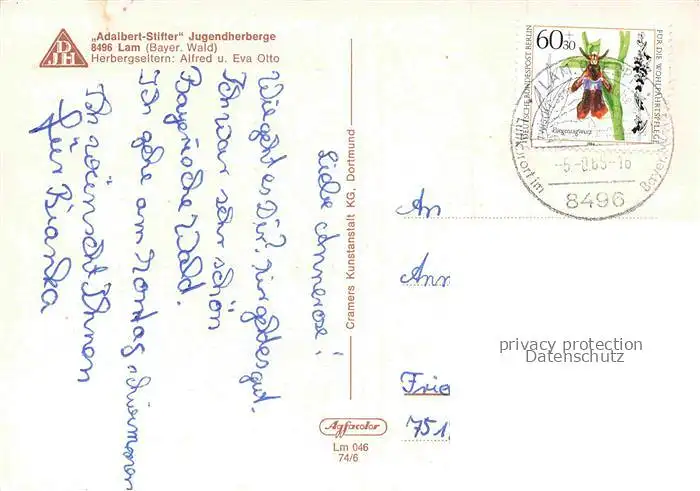 „Adalbert-Stifter" Jugendherberge
8496 Lam (Bayer. Wald)
Herbergseltern: Alfred u. Eva Otto
DJH
Liebe Annerose!
Wie geht es Dir? Mir geht es gut.
Ich war sehr schön
Bayrische Wald.
Ich gehe am Montag schwimmen
Ich wünscht Ihnen
Bianka
Cramers Kunstanstalt KG, Dortmund
Agfacolor
Lm 046
74/6
60+30
DEUTSCHE BUNDESPOST BERLIN
FÜR DIE WOHLFAHRTSPFLEGE
LAM
Luftkurort im
Bayer.
8496
An
Ann
Frie
751
privacy protection
Datenschutz